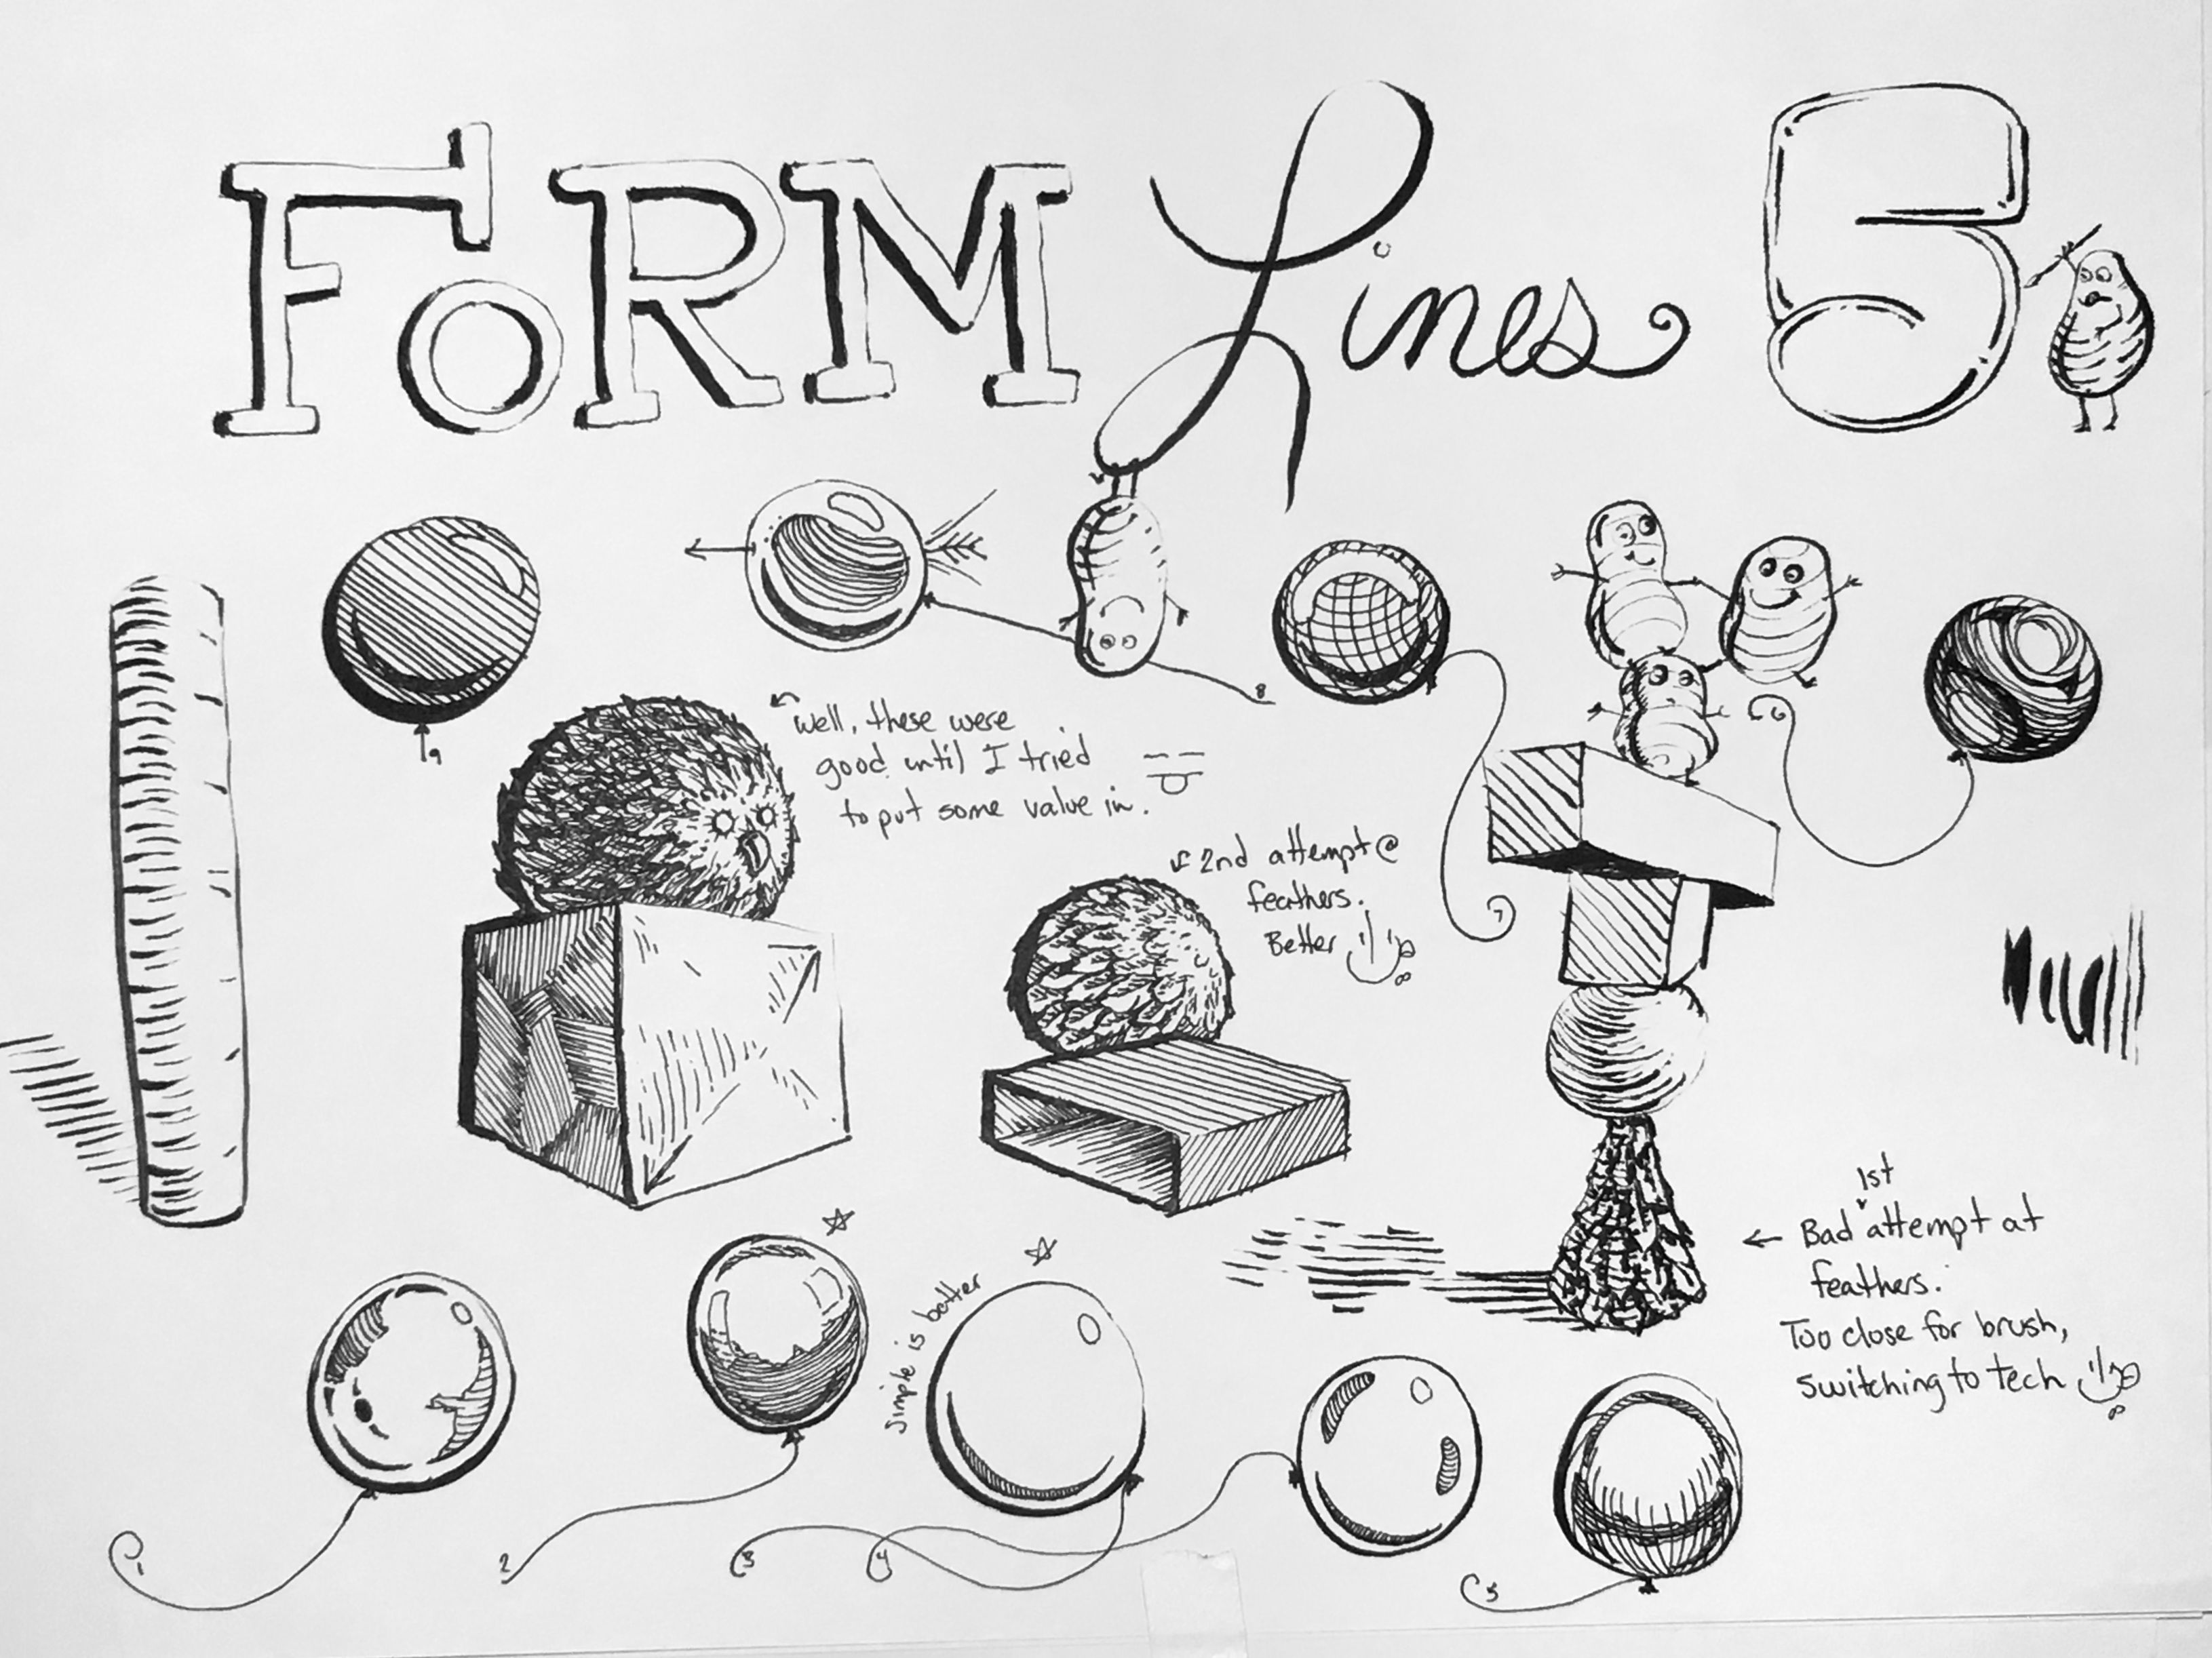 FoRM Lines 5
well, these were
good until I tried
to put some value in.
2nd attempt @
feathers.
Better
1st
Bad attempt at
feathers.
Too close for brush,
switching to tech
simple is better
9
8
7
6
1
2
3
4
5